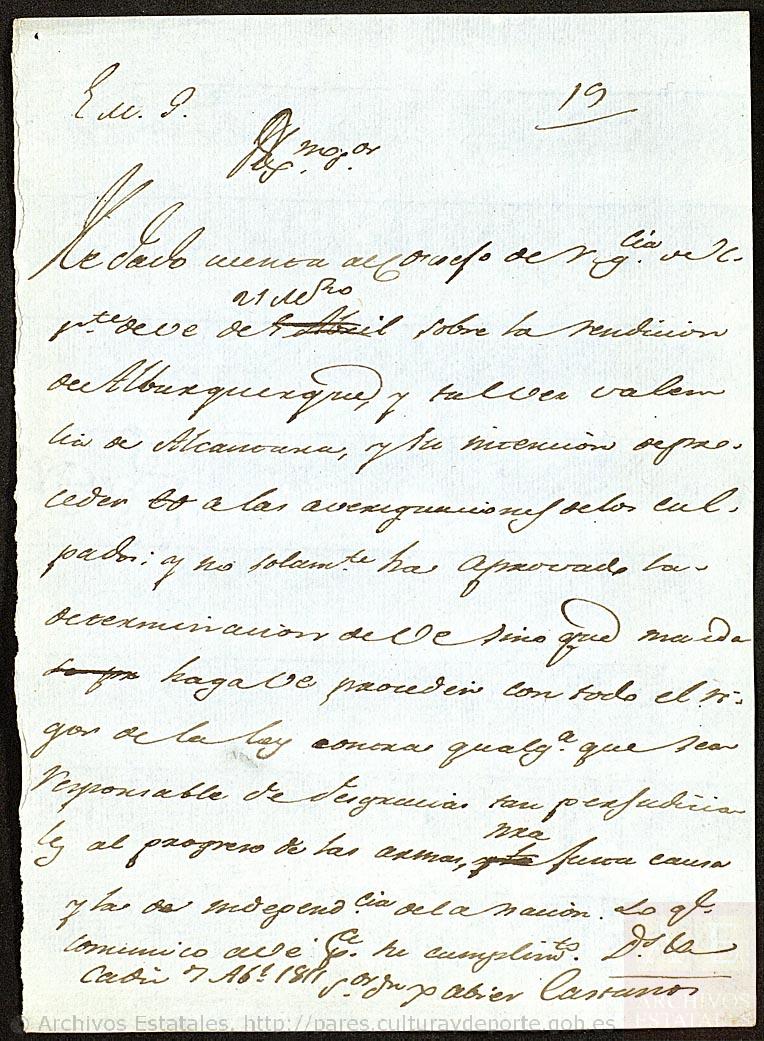 E. M. P.
19
mayor
He dado cuenta al Consejo de Rg.cia del
21 del po
p.te de V E de 7 Abril sobre la rendicion
de Alburquerque, y tal vez valen
cia de Alcantara, y su intencion de pro-
ceder to a las averiguaciones de los cul-
pados: y no solam.te ha aprovado la
determinacion de V E sino que manda
se pr haga V E proceder con todo el ri-
gor de la ley contra qualq.a que sea
responsable de desgracias tan perjudicia
les al progreso de las armas, y la nra justa causa
y la de independ.cia de la nacion. Lo q.e
comunico a V E p.a su cumplim.to. D.s &a
Cadiz 7 Ab.l 1811 S.or Dn Xabier Castaños
© Archivos Estatales, http://pares.culturaydeporte.gob.es
ARCHIVOS
ESTATALES